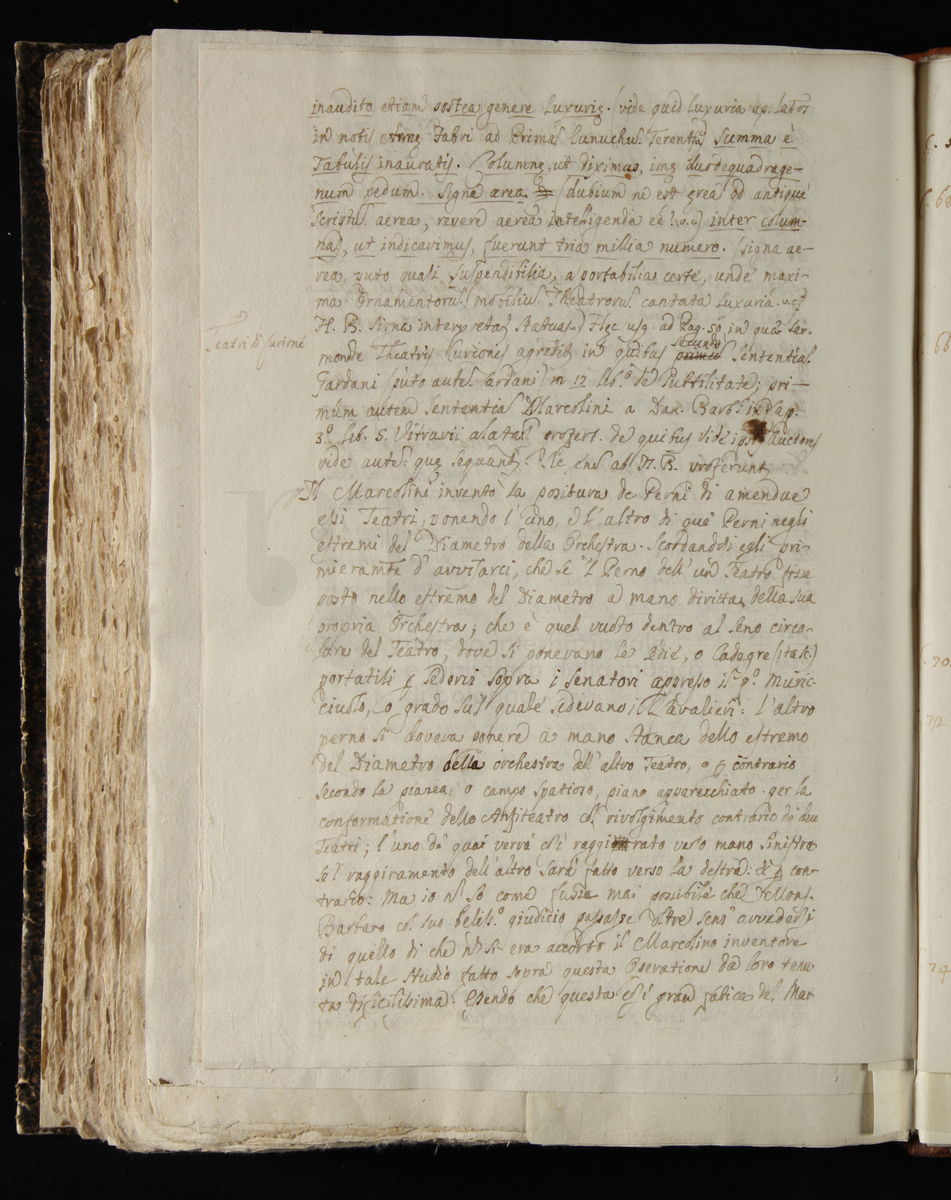 inaudito etiam postea genere luxurię. vide quid luxuria ap. latos
in notis Annę Fabri ad Primā Eunuchū Terentij summa è
Tabulis inauratis. Columnę, ut diximus, imę duodequadrage-
num pedum. signa area dubium ne est ęrea od antiquè
script. aerea, vere aerea intelligenda eē inter colum-
nas, ut indicavimus, fuerunt tria millia numero. signa ae-
rea, puto quasi suspendibilia, a portabilia certe, unde maxi-
ma ornamentorū mobiliū Theatrorū cantata luxuria. v.c.
H. B. signa interpretat Statuas. Hęc usq. ad Pag. 50 in qua ser-
Teatri di Curione
monde Theatris Curionis agredit in quibus secundo Sententiā
Gardani puto autē Cardani in 12 lib.° de Subtilitate, pri-
mum autem sententiā Marcolini a Dan. Barb. in Cap.
3.° lib. 5. Vitruvii alatā profert. de quibus vide ipsos Auctores
vide autē quę sequantr. Hęc enī ab H. B. proferunt
Il Marcolini inventò la positura de Perni di amendue
essi Teatri, ponendo l'uno, e l'altro di que' Perni negli
estremi del Diametro della Orchestra. Scordandosi egli pri-
mieramte d'avvisarci, che se 'l Perno dell' un Teatro fosse
posto nello estremo del Diametro a mano diritta della sua
propria Orchestra; che è quel vuoto dentro al seno circo-
lare del Teatro, dove si ponevano le sedie, o Cadegre (Ital.)
portatili p sedervi sopra i senatori appresso il p.° Muric-
ciuolo, o grado sul quale sedevano i Cavalieri: l'altro
perno si doveva ponere a mano stanca dello estremo
del Diametro della orchestra dell' altro Teatro, o p contrario
secondo la piazza o campo spatioso, piano apparecchiato per la
conformatione dello Anfiteatro col rivolgimento contrario de' due
Teatri; l'uno de' quai verrà cosi raggirato verso mano sinistra
se 'l raggiramento dell'altro sarà fatto verso la destra: & p con-
trario: Ma io nō so come fusse mai possibile che Mons.
Barbaro col suo bellis.° giudicio passasse oltre senz' avvedersi
di quello di che nō si era accorto il Marcolino inventore
in tale studio fatto sopra questa Operatione da loro tenu
ta dificilissima. Essendo che questa cosi gran fatica del Mar